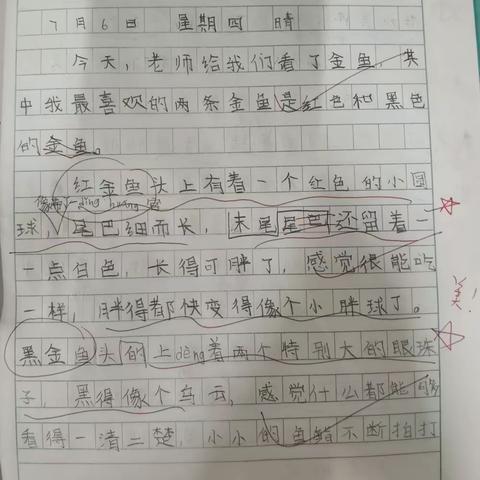 7月6日 星期四 晴
今天，老师给我们看了金鱼，其
中我最喜欢的两条金鱼是红色和黑色
的金鱼。
红金鱼头上有着一个红色的小圆
球，尾巴细而长，末尾尾巴还留着一
一点白色，长得可胖了，感觉很能吃
一样，胖得都快变得像个小胖球了。
黑金鱼头的上dèng着两个特别大的眼珠
子，黑得像个乌云，感觉什么都能
看得一清二楚，小小的鱼鳍不断拍打